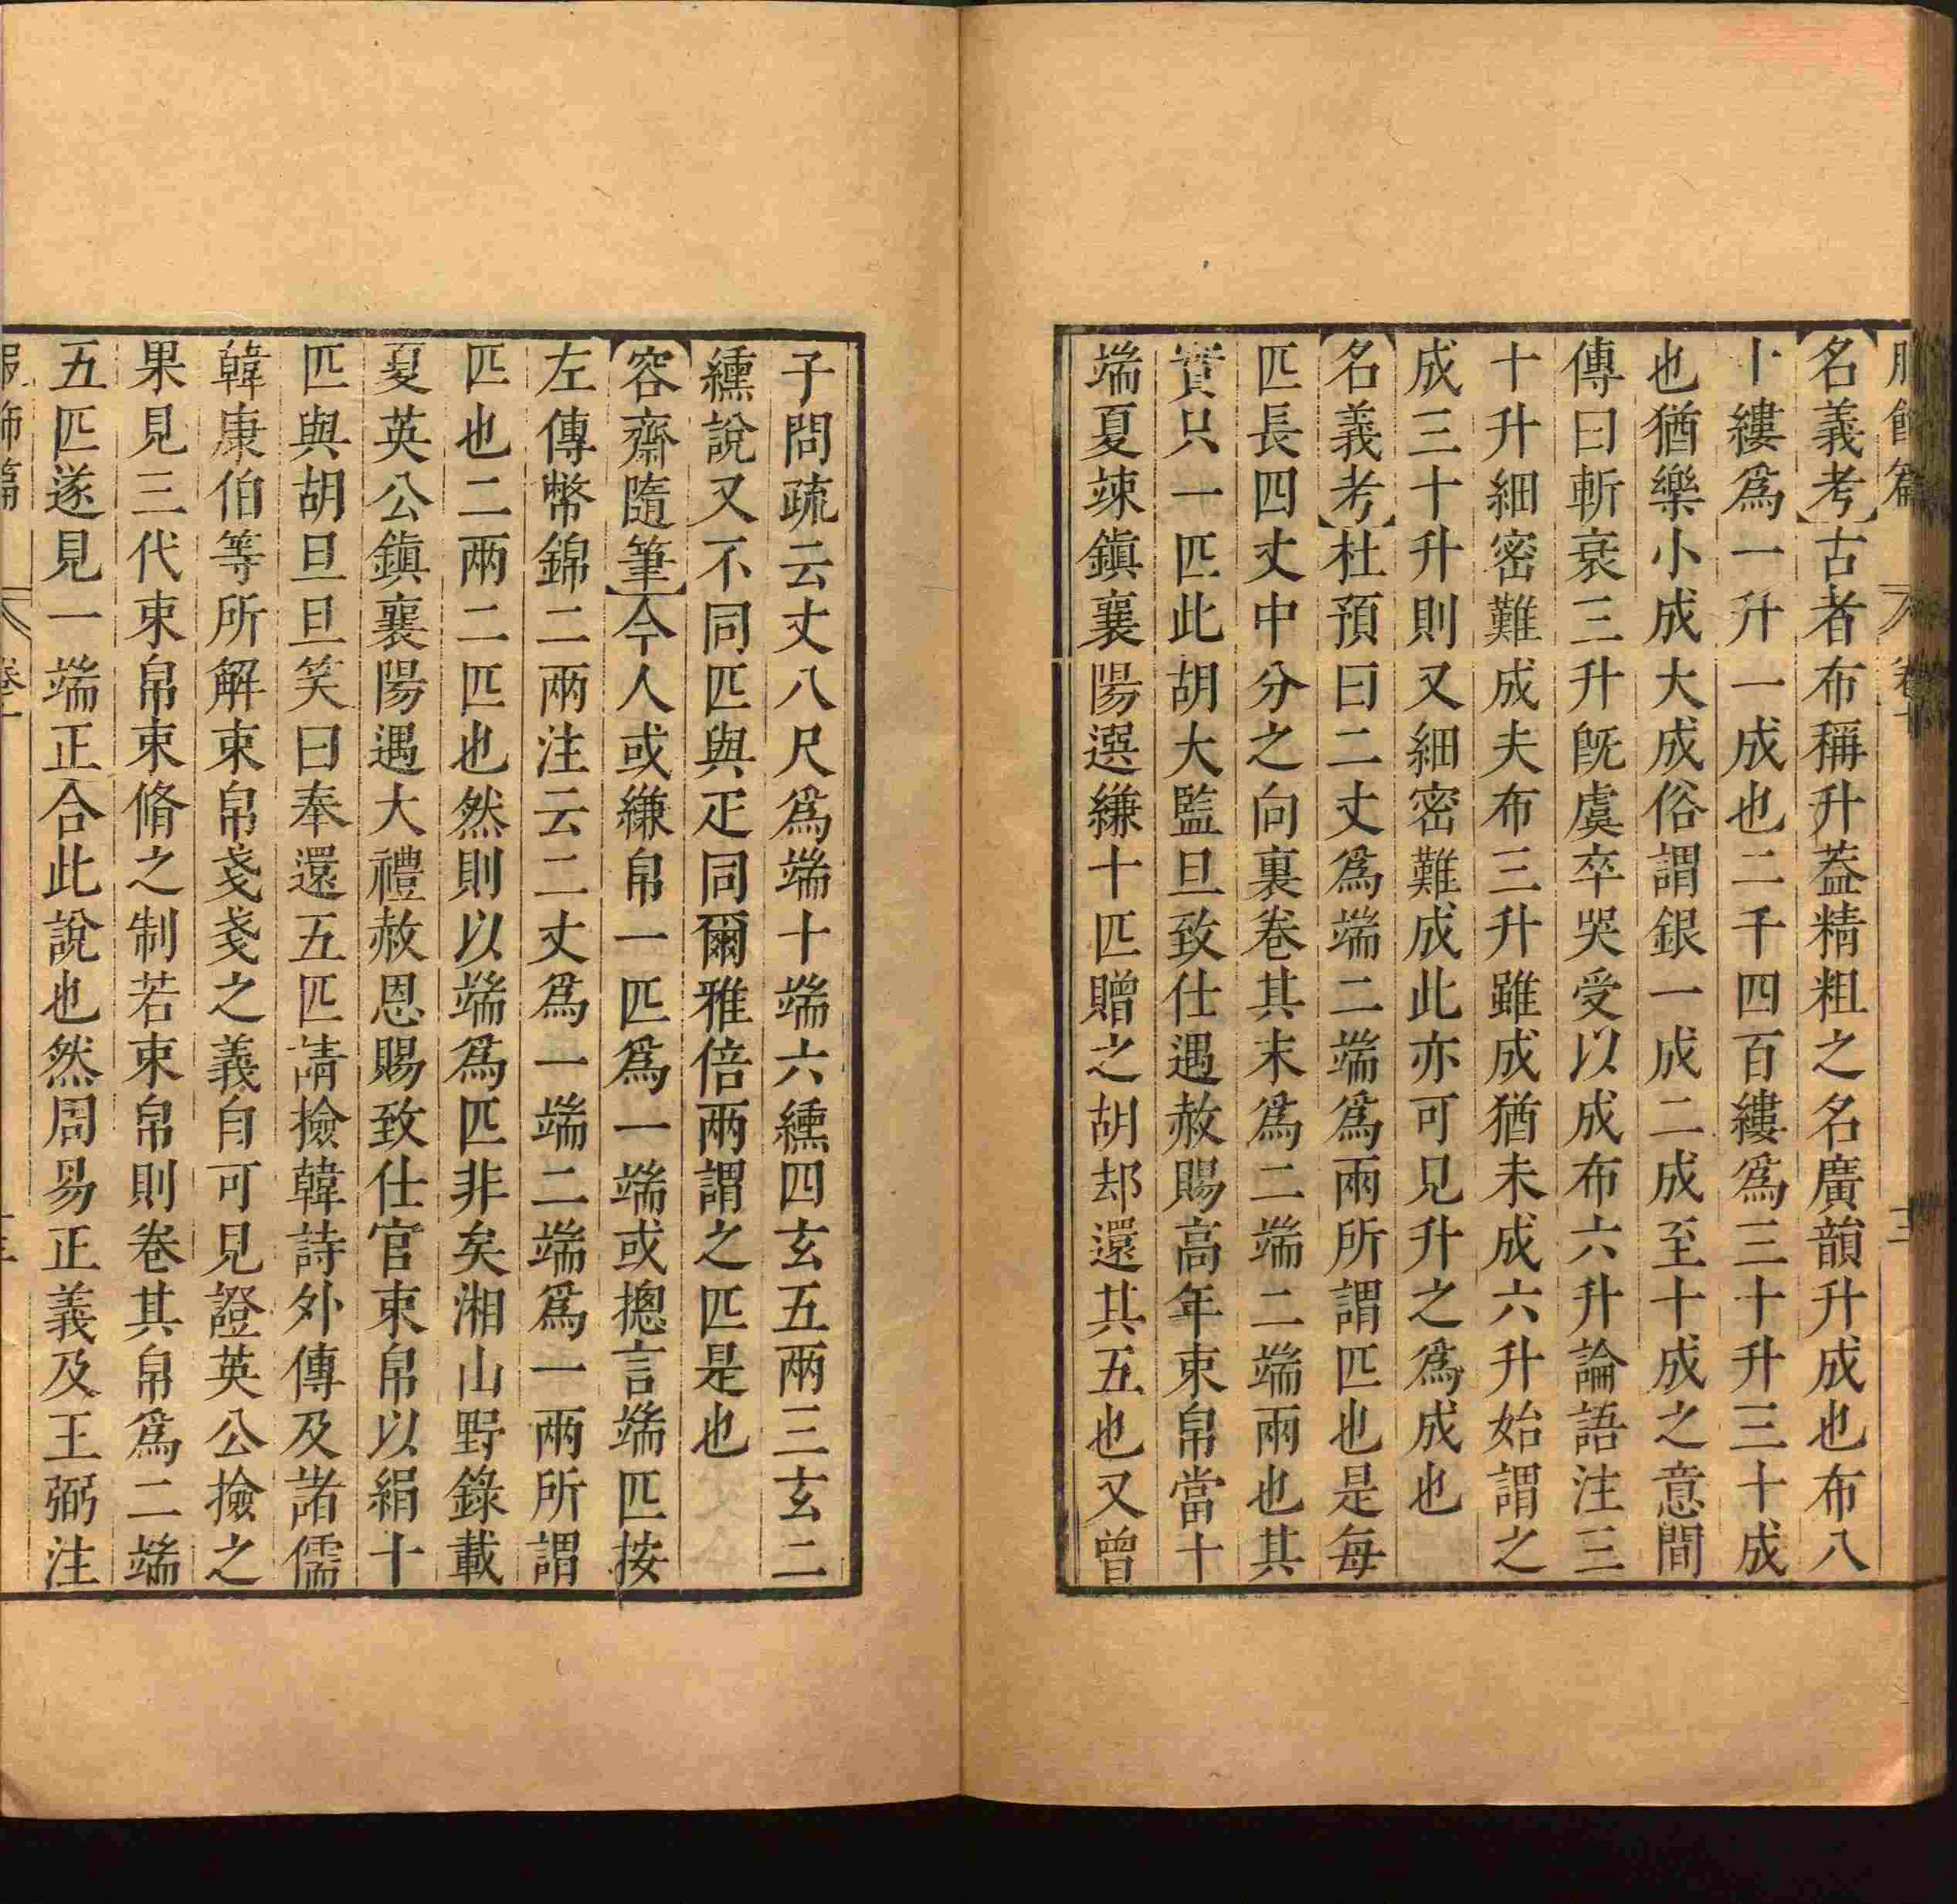 服飾篇 卷十 三
【名義考】古者布稱升葢精粗之名廣韻升成也布八
十縷爲一升一成也二千四百縷爲三十升三十成
也猶樂小成大成俗謂銀一成二成至十成之意間
傳曰斬衰三升旣虞卒哭受以成布六升論語注三
十升細密難成夫布三升雖成猶未成六升始謂之
成三十升則又細密難成此亦可見升之爲成也
【名義考】杜預曰二丈爲端二端爲兩所謂匹也是每
匹長四丈中分之向裏卷其末爲二端二端兩也其
實只一匹此胡大監旦致仕遇赦賜高年束帛當十
端夏竦鎭襄陽選縑十匹贈之胡却還其五也又曾
子問疏云丈八尺爲端十端六纁四玄五兩三玄二
纁說又不同匹與疋同爾雅倍兩謂之匹是也
【容齋隨筆】今人或縑帛一匹爲一端或摠言端匹按
左傳幣錦二兩注云二丈爲一端二端爲一兩所謂
匹也二兩二匹也然則以端爲匹非矣湘山野錄載
夏英公鎭襄陽遇大禮赦恩賜致仕官束帛以絹十
匹與胡旦旦笑曰奉還五匹請撿韓詩外傳及諸儒
韓康伯等所解束帛戔戔之義自可見證英公撿之
果見三代束帛束脩之制若束帛則卷其帛爲二端
五匹遂見一端正合此說也然周易正義及王弼注
服飾篇 卷十